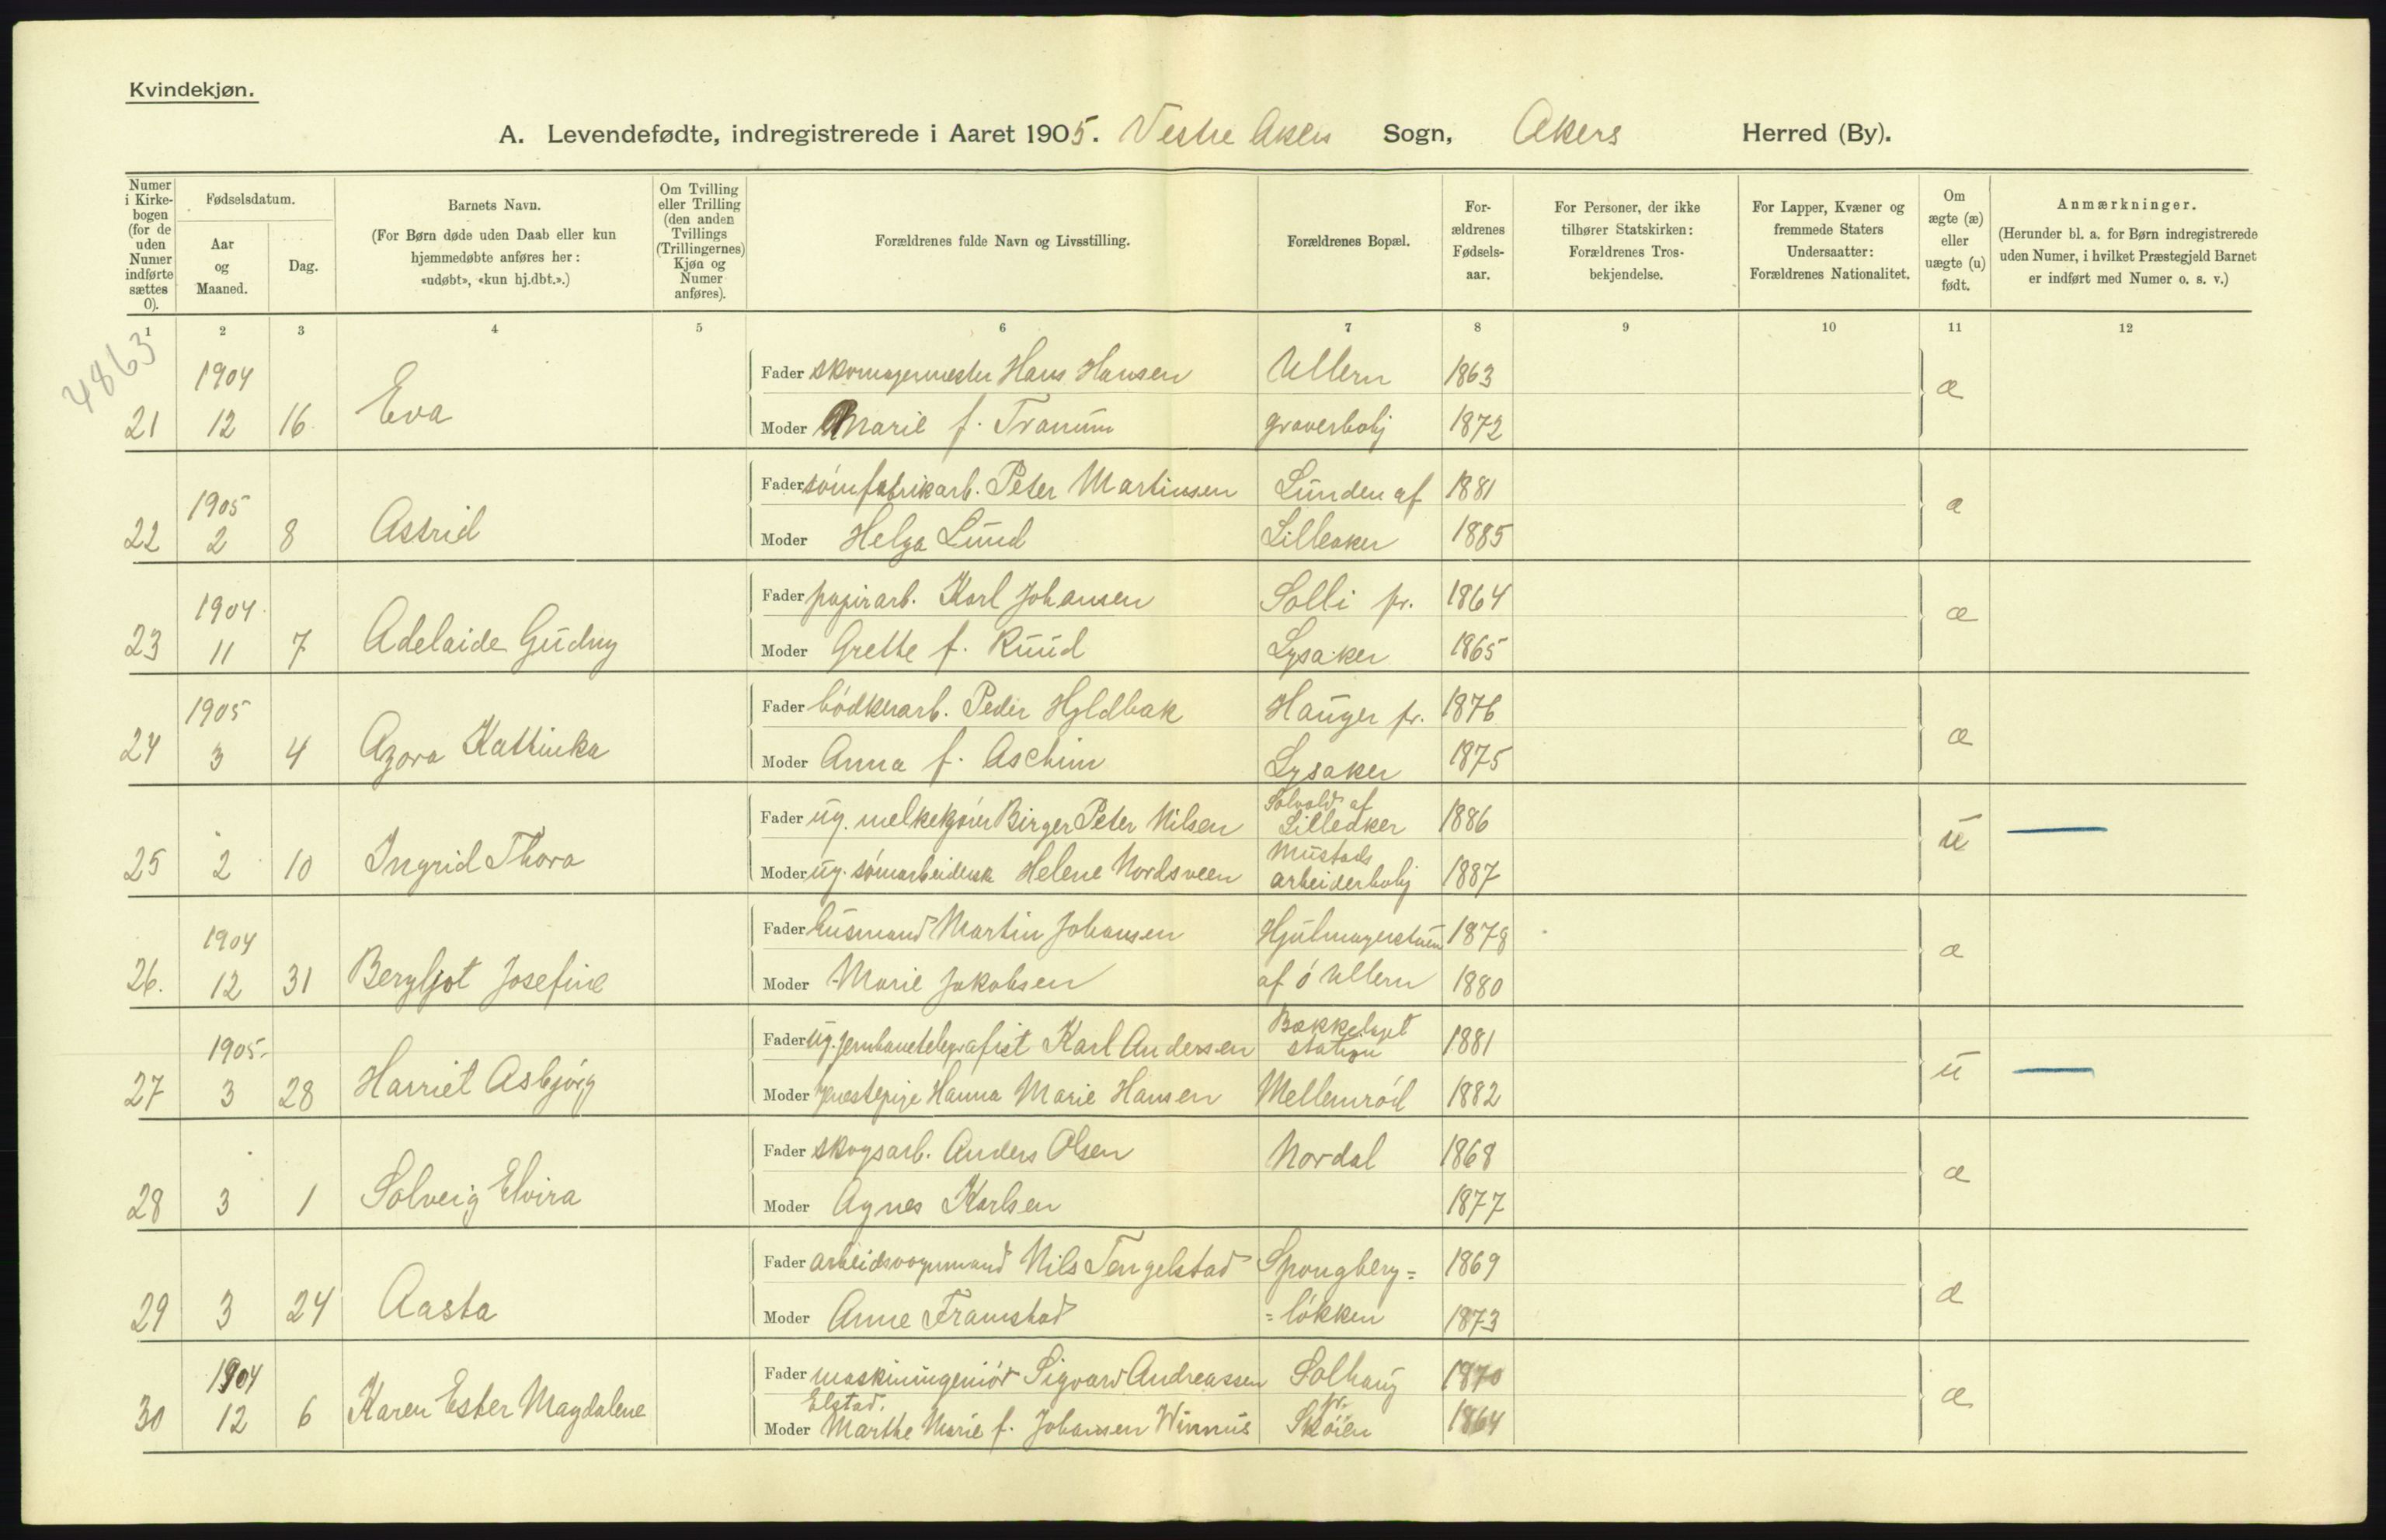 Kvindekjøn.
A. Levendefødte, indregistrerede i Aaret 1905. Vestre Akers Sogn, Akers Herred (By).
Numer i Kirkebogen (for de uden Numer indførte sættes 0).
Fødselsdatum.
Aar og Maaned.
Dag.
Barnets Navn.
(For Børn døde uden Daab eller kun hjemmedøbte anføres her: «udøbt», «kun hj.dbt.».)
Om Tvilling eller Trilling (den anden Tvillings (Trillingernes) Kjøn og Numer anføres).
Forældrenes fulde Navn og Livsstilling.
Forældrenes Bopæl.
For- ældrenes Fødsels- aar.
For Personer, der ikke tilhører Statskirken: Forældrenes Tros- bekjendelse.
For Lapper, Kvæner og fremmede Staters Undersaatter: Forældrenes Nationalitet.
Om ægte (æ) eller uægte (u) født.
Anmærkninger.
(Herunder bl. a. for Børn indregistrerede uden Numer, i hvilket Præstegjeld Barnet er indført med Numer o. s. v.)
1 2 3 4 5 6 7 8 9 10 11 12
4863
1904 Fader skomagermester Hans Hansen Ullern 1863 æ
21 12 16 Eva Moder Marie f. Tranum graverbolig 1872
1905 Fader sömfabrikarb. Peter Martinsen Lunden af 1881 æ
22 2 8 Astrid Moder Helga Lund Lilleaker 1885
1904 Fader papirarb. Karl Johansen Solli pr. 1864 æ
23 11 7 Adelaide Gudny Moder Grethe f. Ruud Lysaker 1965
1905 Fader bödkerarb. Peder Hyldbak Hauger pr. 1876 æ
24 3 4 Azora Kathinka Moder Anna f. Aschim Lysaker 1875
Fader ug. melkekjörer Birger Peter Nilsen Solvold af Lilleaker 1886 u
25 2 10 Ingrid Thora Moder ug. sömarbeiderske Helene Nordsveen Mustads arbeiderbolig 1887
1904 Fader husmand Martin Johansen Hjulmagerstuen 1878 æ
26. 12 31 Bergljot Josefine Moder Marie Jakobsen af ö Ullern 1880
1905 Fader ug. jernbanetelegrafist Karl Andersen Bækkelaget station 1881 u
27 3 28 Harriet Asbjörg Moder tjenestepige Hanna Marie Hansen Mellemröd 1882
Fader skogsarb. Anders Olsen Nordal 1868 æ
28 3 1 Solveig Elvira Moder Agnes Karlsen 1877
Fader arbeidsvognmand Nils Tengelstad Spongberg= 1869 æ
29 3 24 Aasta Moder Anne Framstad =lökken 1873
1904 Fader maskiningeniör Sigvard Andreassen Solhaug 1870 æ
Elstad. pr.
30 12 6 Karen Ester Magdalene Moder Marthe Marie f. Johansen Sköien 1864